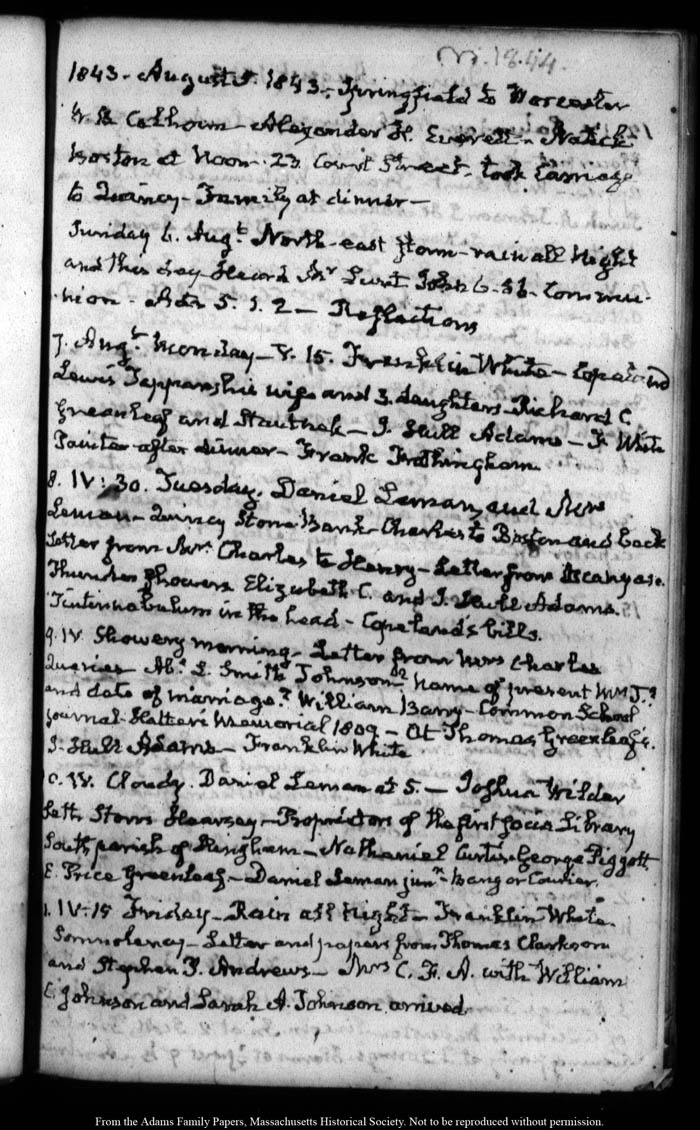 VI. 18.44.
1843. August 5. 1843. Springfield to Worcester
W. B. Calhoun - Alexander H. Everett - Natick
Boston at Noon. 23. Court Street - took Carriage
to Quincy - Family at dinner -
Sunday 6. Augt. North-east storm - rain all Night
and this day - Heard Mr Lunt John 6. Commu-
-nion - Acts 5. 1. 2 - Reflections
7. Augt. Monday - V. 15. Franklin White - Copeland
Lewis Tappan his wife and 3. daughters - Richard C
Greenleaf and - J. Hull Adams - F. White
Painter after dinner - Frank Frothingham.
8. IV: 30. Tuesday. Daniel Leman, and Mrs
Leman - Quincy Stone Bank - Charles to Boston and back
Letter from Mrs. Charles to Henry - Letter from
Thunder Showers Elizabeth C. and J. Hull Adams.
Tintinnabulum in the head - Copeland's bills.
9. IV. Showery morning - Letter from Mrs Charles
Queries Ab. S. Smith Johnson name of present Mrs J.?
and date of marriage? William Barry - Common School
Journal - Memorial 1809 - At Thomas Greenleaf's.
J. Hull Adams - Franklin White
10. IV. Cloudy. Daniel Leman at 5. - Joshua Wilder
Seth Storrs Hearsey - Proprietors of the first social Library
South parish of Hingham - Nathaniel Curtis. George Piggott
E. Price Greenleaf - Daniel Leman junr. - Bangor Courier.
1. IV. 15 Friday - Rain all Night - Franklin White
Somnolency - Letter and papers from Thomas Clarkson
and Stephen P. Andrews - Mrs C. F. A. with William
C. Johnson and Sarah A. Johnson arrived.
From the Adams Family Papers, Massachusetts Historical Society. Not to be reproduced without permission.